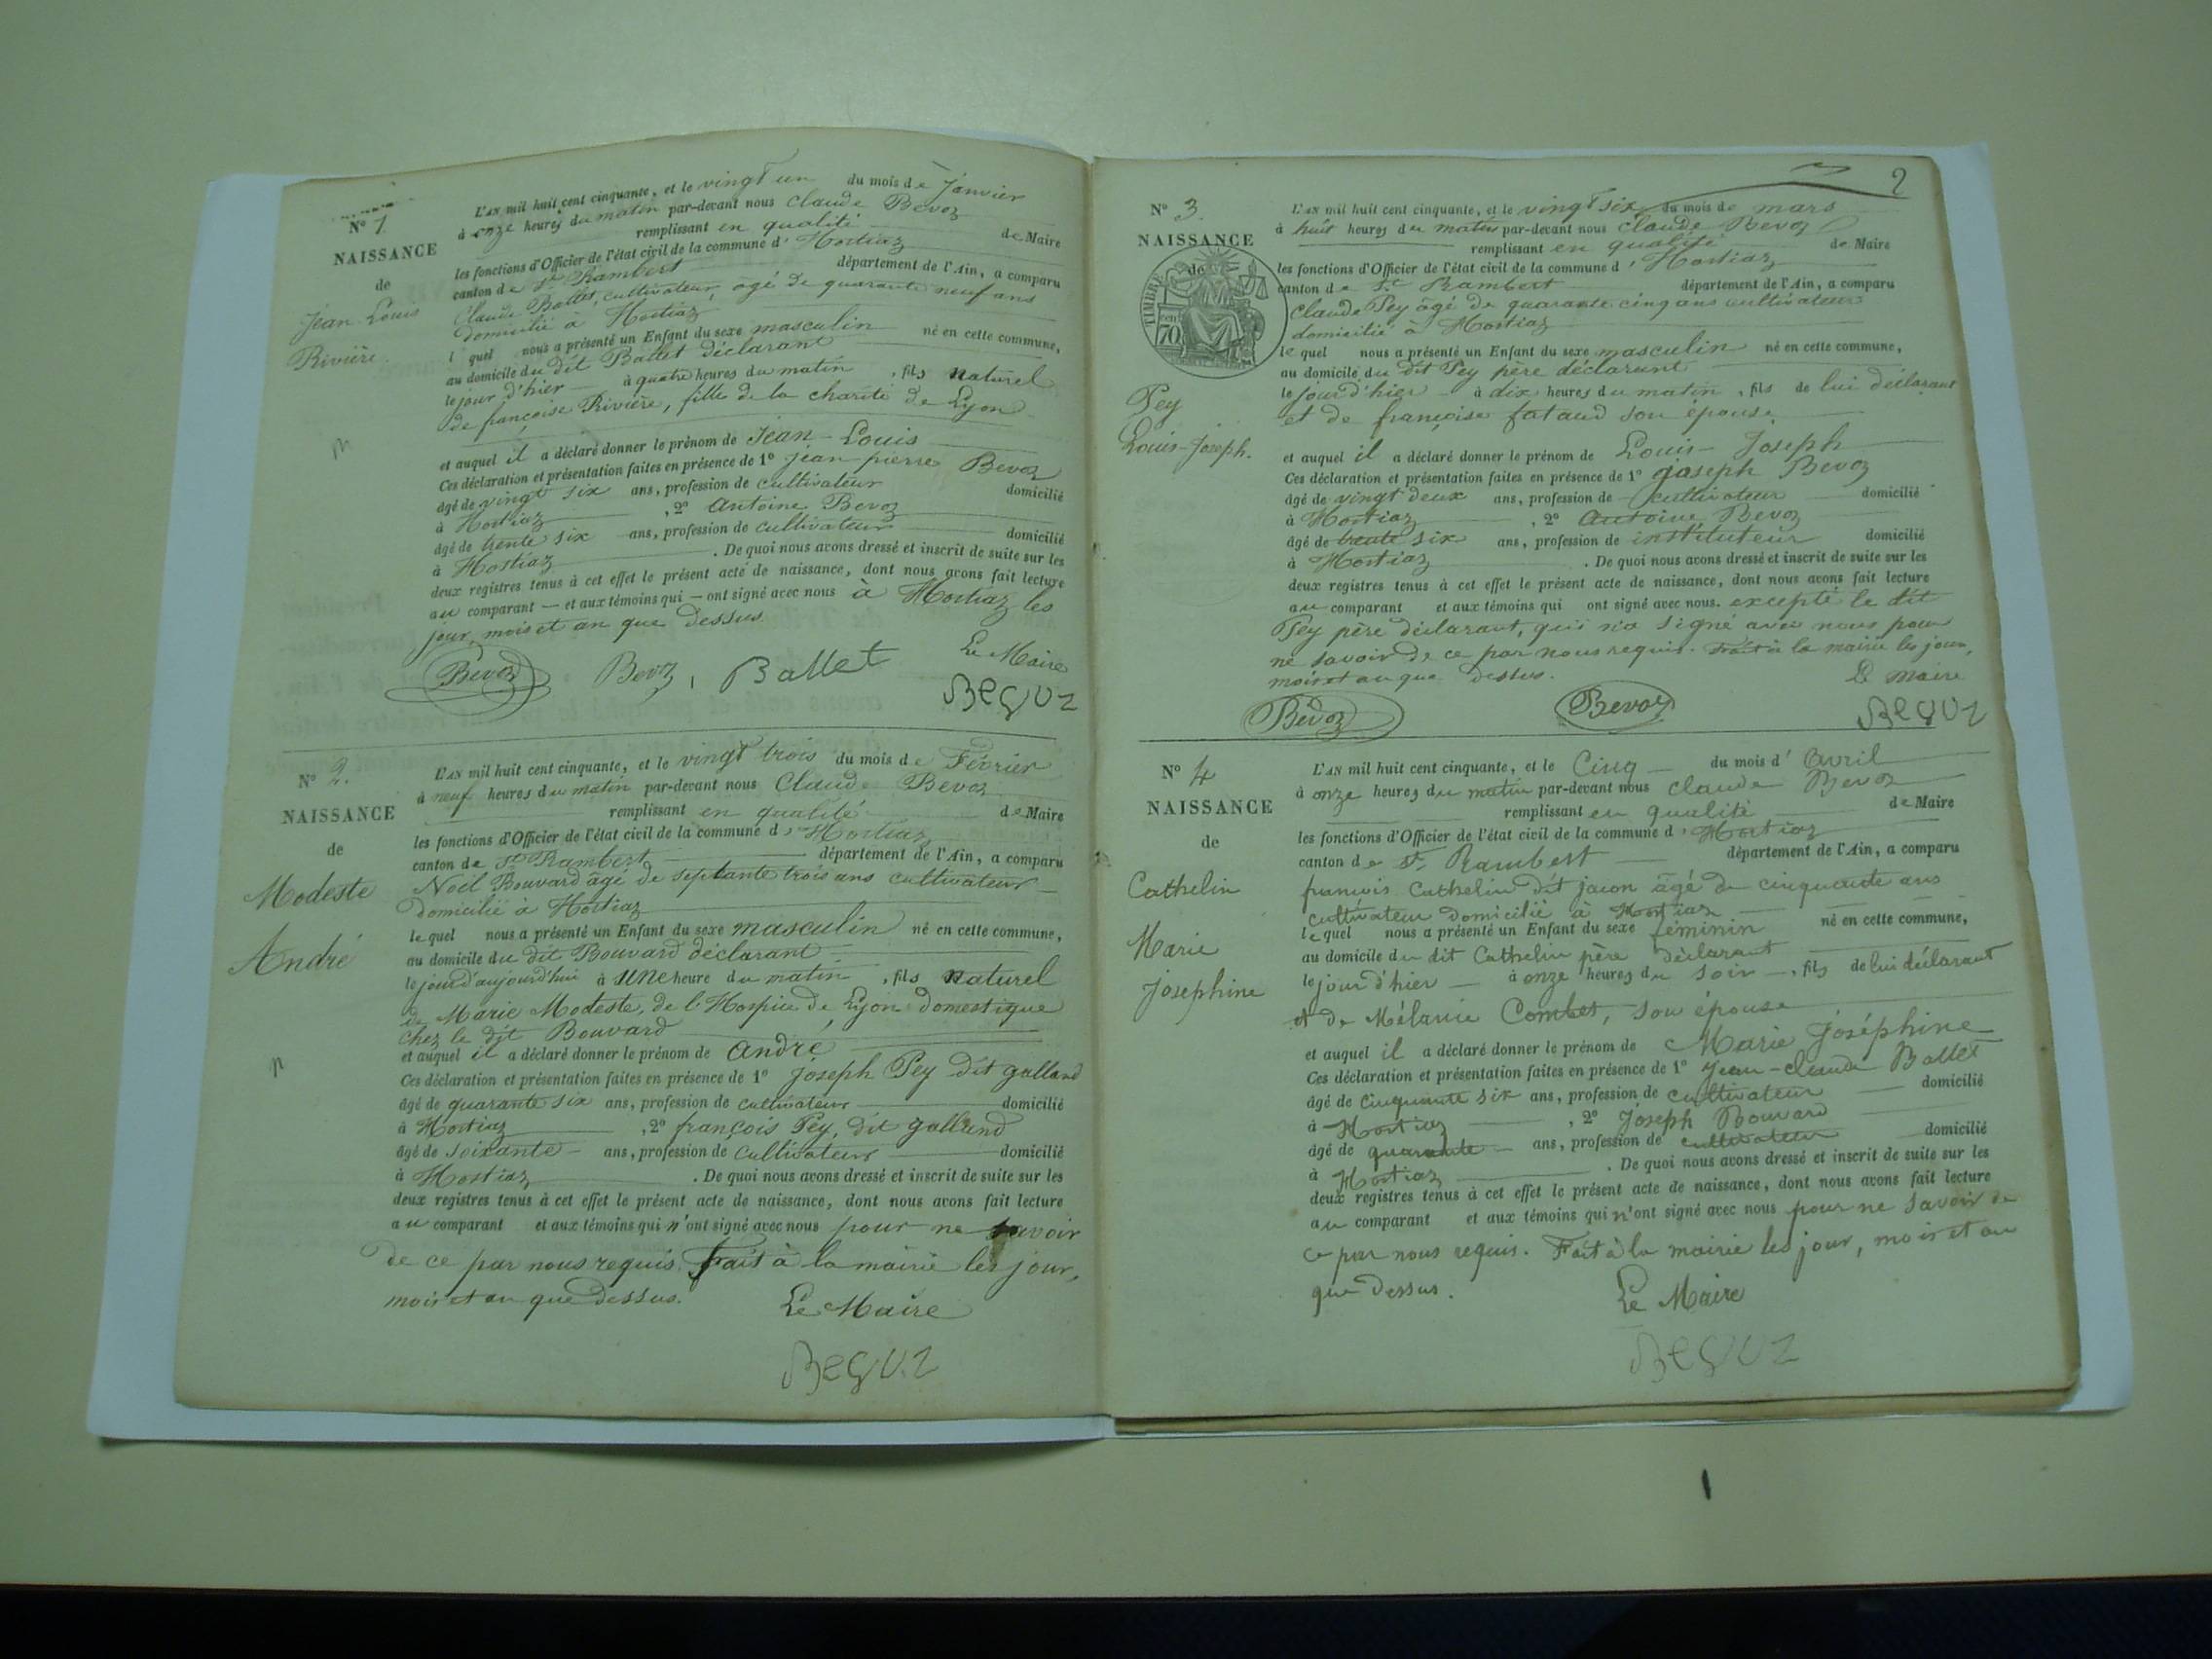 N° 1
NAISSANCE
de
Jean Louis
Rivière.
L'AN mil huit cent cinquante, et le vingt un du mois de Janvier
à onze heures du matin par-devant nous Claude Bevoz
remplissant en qualité de Maire
les fonctions d'Officier de l'état civil de la commune d'Hostiaz
canton de St Rambert département de l'Ain, a comparu
Claude Ballet, cultivateur, âgé de quarante neuf ans
domicilié à Hostiaz
lequel nous a présenté un Enfant du sexe masculin né en cette commune,
au domicile du dit Ballet déclarant
le jour d'hier à quatre heures du matin, fils naturel
de françoise Rivière, fille de la charité de Lyon
et auquel il a déclaré donner le prénom de Jean-Louis
Ces déclaration et présentation faites en présence de 1° jean-pierre Bevoz
âgé de vingt six ans, profession de cultivateur domicilié
à Hostiaz, 2° Antoine Bevoz
âgé de trente six ans, profession de cultivateur domicilié
à Hostiaz. De quoi nous avons dressé et inscrit de suite sur les
deux registres tenus à cet effet le présent acte de naissance, dont nous avons fait lecture
au comparant — et aux témoins qui — ont signé avec nous à Hostiaz les
jour, mois et an que dessus.
Le Maire
Bevoz Bevoz, Ballet
N° 2.
NAISSANCE
de
Modeste
André
L'AN mil huit cent cinquante, et le vingt trois du mois de Février
à neuf heures du matin par-devant nous Claude Bevoz
remplissant en qualité de Maire
les fonctions d'Officier de l'état civil de la commune d'Hostiaz
canton de St Rambert département de l'Ain, a comparu
Noël Bouvard âgé de septante trois ans cultivateur
domicilié à Hostiaz
lequel nous a présenté un Enfant du sexe masculin né en cette commune,
au domicile du dit Bouvard déclarant
le jour d'aujourd'hui à une heure du matin, fils naturel
de Marie Modeste, de l'Hospice de Lyon domestique
chez le dit Bouvard
et auquel il a déclaré donner le prénom de André
Ces déclaration et présentation faites en présence de 1° Joseph Pey dit galland
âgé de quarante six ans, profession de cultivateur domicilié
à Hostiaz, 2° françois Pey, dit galland
âgé de soixante ans, profession de cultivateur domicilié
à Hostiaz. De quoi nous avons dressé et inscrit de suite sur les
deux registres tenus à cet effet le présent acte de naissance, dont nous avons fait lecture
au comparant et aux témoins qui n'ont signé avec nous pour ne savoir
de ce par nous requis. Fait à la mairie les jour,
mois et an que dessus.
Le Maire
2
N° 3.
NAISSANCE
de
TIMBRE
70
Pey
Louis-Joseph.
L'AN mil huit cent cinquante, et le vingt six du mois de mars
à huit heures du matin par-devant nous Claude Bevoz
remplissant en qualité de Maire
les fonctions d'Officier de l'état civil de la commune d'Hostiaz
canton de St Rambert département de l'Ain, a comparu
Claude Pey âgé de quarante cinq ans cultivateur
domicilié à Hostiaz
lequel nous a présenté un Enfant du sexe masculin né en cette commune,
au domicile du dit Pey père déclarant
le jour d'hier à dix heures du matin, fils de lui déclarant
et de françoise son épouse
et auquel il a déclaré donner le prénom de Louis-Joseph
Ces déclaration et présentation faites en présence de 1° joseph Bevoz
âgé de vingt deux ans, profession de cultivateur domicilié
à Hostiaz, 2° Antoine Bevoz
âgé de trente six ans, profession de instituteur domicilié
à Hostiaz. De quoi nous avons dressé et inscrit de suite sur les
deux registres tenus à cet effet le présent acte de naissance, dont nous avons fait lecture
au comparant et aux témoins qui ont signé avec nous. excepté le dit
Pey père déclarant, qui n'a signé avec nous pour
ne savoir de ce par nous requis. Fait à la mairie les jour,
mois et an que dessus.
Le Maire
Bevoz Bevoz
N° 4
NAISSANCE
de
Cathelin
Marie
Josephine
L'AN mil huit cent cinquante, et le Cinq du mois d'avril
à onze heures du matin par-devant nous Claude Bevoz
remplissant en qualité de Maire
les fonctions d'Officier de l'état civil de la commune d'Hostiaz
canton de St Rambert département de l'Ain, a comparu
françois Cathelin dit âgé de cinquante ans
cultivateur domicilié à Hostiaz
lequel nous a présenté un Enfant du sexe féminin né en cette commune,
au domicile du dit Cathelin père déclarant
le jour d'hier à onze heures du soir, fils de lui déclarant
et de Mélanie Combet, son épouse
et auquel il a déclaré donner le prénom de Marie Joséphine
Ces déclaration et présentation faites en présence de 1° Jean-Claude Ballet
âgé de cinquante six ans, profession de cultivateur domicilié
à Hostiaz, 2° Joseph Bouvard
âgé de quarante ans, profession de cultivateur domicilié
à Hostiaz. De quoi nous avons dressé et inscrit de suite sur les
deux registres tenus à cet effet le présent acte de naissance, dont nous avons fait lecture
au comparant et aux témoins qui n'ont signé avec nous pour ne savoir de
ce par nous requis. Fait à la mairie les jour, mois et an
que dessus.
Le Maire